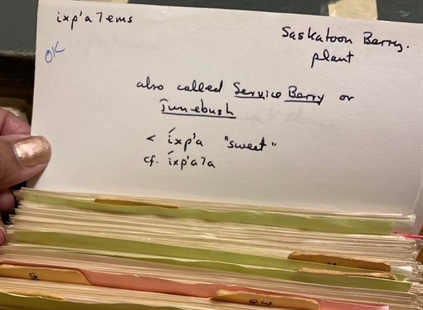 ixp'a7ems
Saskatoon Berry.
plant
OK
also called Service Berry or
Junebush
< íxp'a "sweet"
cf. íxp'a7a